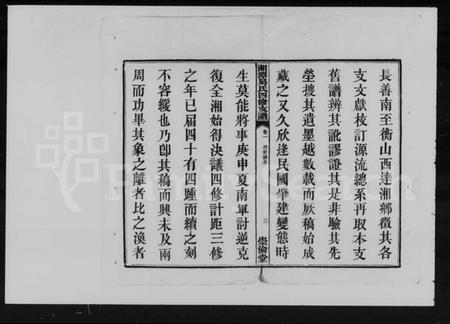 長善南至衡山西達湘鄉徵其各
支文獻枝訂源流總系再取本支
舊譜辨其訛謬證其是非驗其先
塋搜其遺墨越數載而厥稿始成
藏之又久欣逢民國肇建變態時
湘潭易氏四修支譜
卷一
三
崇倫堂
生莫能將事庚申夏南軍討逆克
復全湘始得決議四修計距三修
之年已屆四十有四踵而續之刻
不容緩也乃卽其稿而興未及兩
周而功畢其象之離者比之渙者
FamilySearch